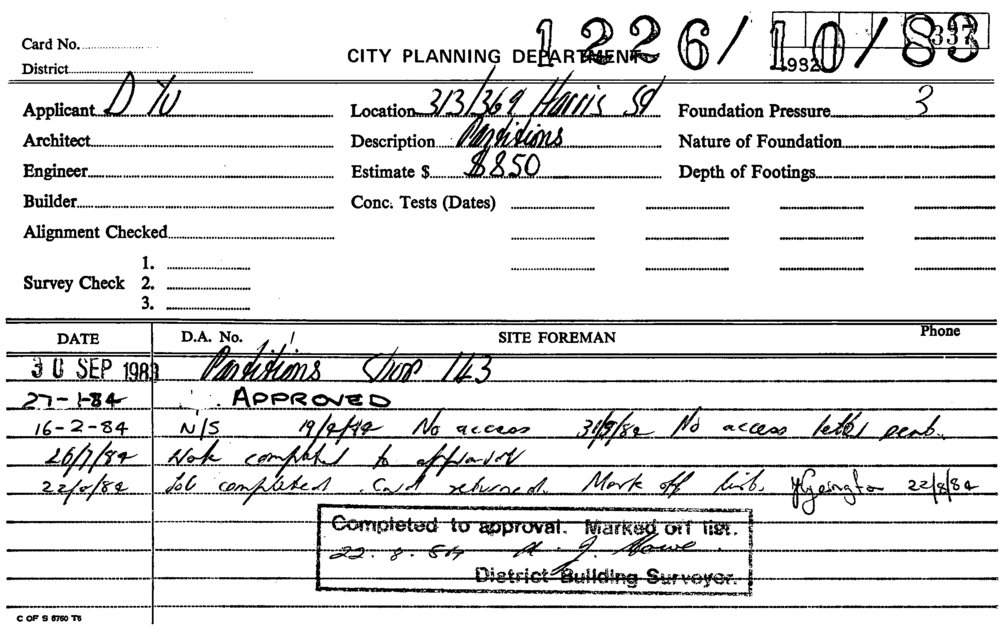 Card No.
1226/10/83
337
CITY PLANNING DEPARTMENT
1982
District
Applicant D Yu
Location 313/369 Harris St
Foundation Pressure 3
Architect
Description Partitions
Nature of Foundation
Engineer
Estimate $ $850
Depth of Footings
Builder
Conc. Tests (Dates)
Alignment Checked
Survey Check
1.
2.
3.
DATE D.A. No. SITE FOREMAN Phone
30 SEP 1983 Partitions Shop 143
27-1-84 APPROVED
16-2-84 N/S 19/4/84 No access 31/5/84 No access letter sent.
26/7/84 Work completed to approval
22/8/84 Job completed. Card returned. Mark off list. 22/8/84
Completed to approval. Marked off list.
22.8.84
District Building Surveyor.
C OF S 6760 T6